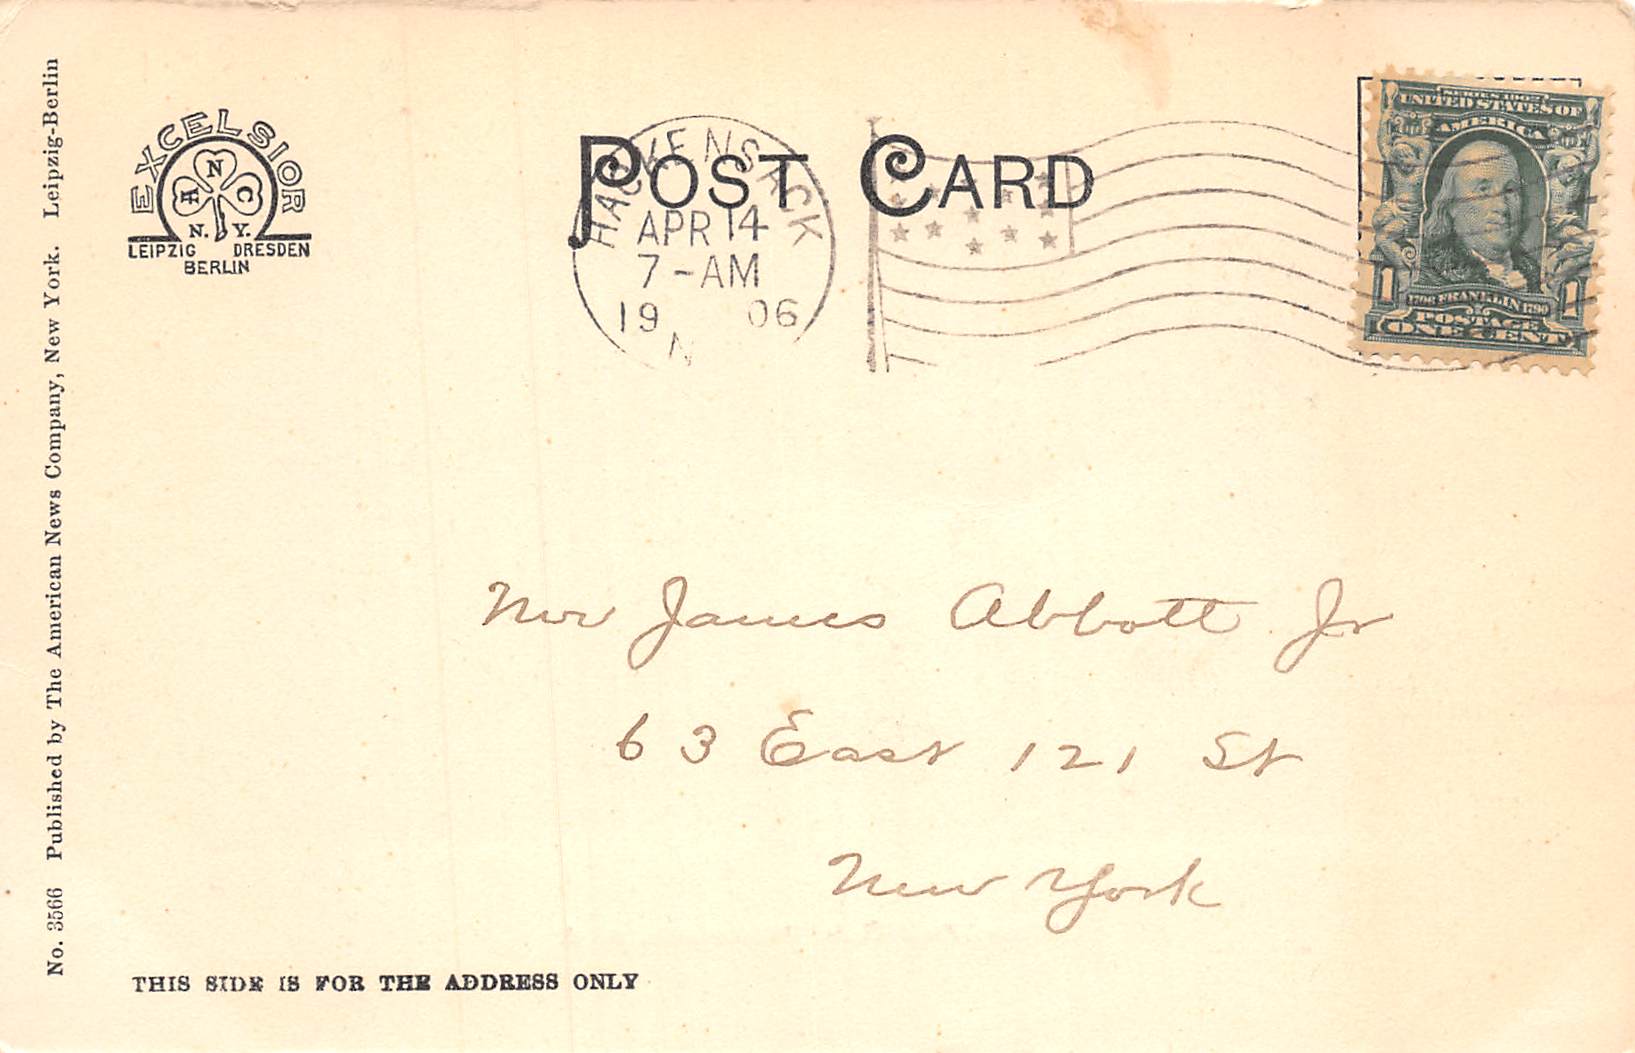 No. 3566 Published by The American News Company, New York. Leipzig-Berlin
EXCELSIOR
A N C
N. Y.
LEIPZIG DRESDEN
BERLIN
POST CARD
HACKENSACK
APR 14
7-AM
19 06
N
SERIES 1902
UNITED STATES OF
AMERICA
1 1
1706 FRANKLIN 1790
POSTAGE
ONE CENT
Mr James Abbott Jr
63 East 121 St
New York
THIS SIDE IS FOR THE ADDRESS ONLY